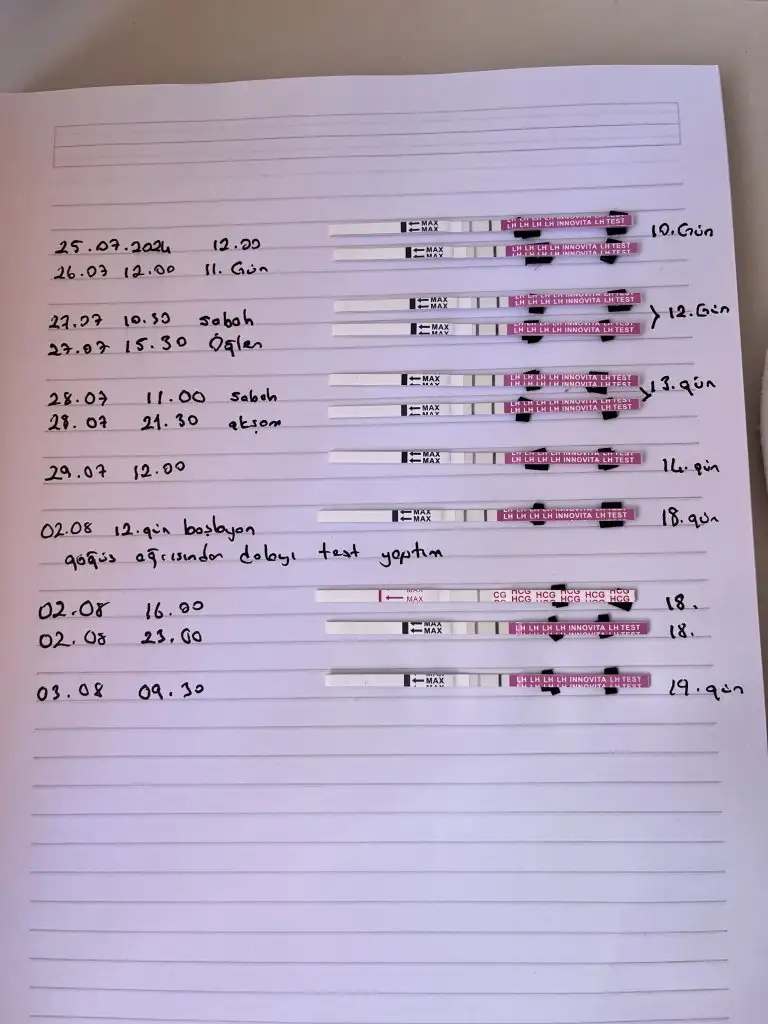 ← MAX
← MAX
LH LH LH LH INNOVITA LH TEST
10. Gün
25.07.2024 12.00
← MAX
← MAX
LH LH LH LH INNOVITA LH TEST
26.07 12.00 11. Gün
← MAX
← MAX
LH LH LH LH INNOVITA LH TEST
27.07 10.30 sabah
12. Gün
← MAX
← MAX
LH LH LH LH INNOVITA LH TEST
27.07 15.30 Öğlen
← MAX
← MAX
LH LH LH LH INNOVITA LH TEST
28.07 11.00 sabah
13. gün
← MAX
← MAX
LH LH LH LH INNOVITA LH TEST
28.07 21.30 akşam
← MAX
← MAX
LH LH LH LH INNOVITA LH TEST
29.07 12.00
14. gün
← MAX
← MAX
LH LH LH LH INNOVITA LH TEST
02.08 12.gün başlayan
18. gün
göğüs ağrısından dolayı test yaptım
MAX
← MAX
CG HCG HCG HCG HCG HCG
CG HCG HCG HCG HCG HCG
02.08 16.00
18.
← MAX
← MAX
LH LH LH LH INNOVITA LH TEST
02.08 23.00
18.
← MAX
← MAX
LH LH LH LH INNOVITA LH TEST
03.08 09.30
19. gün